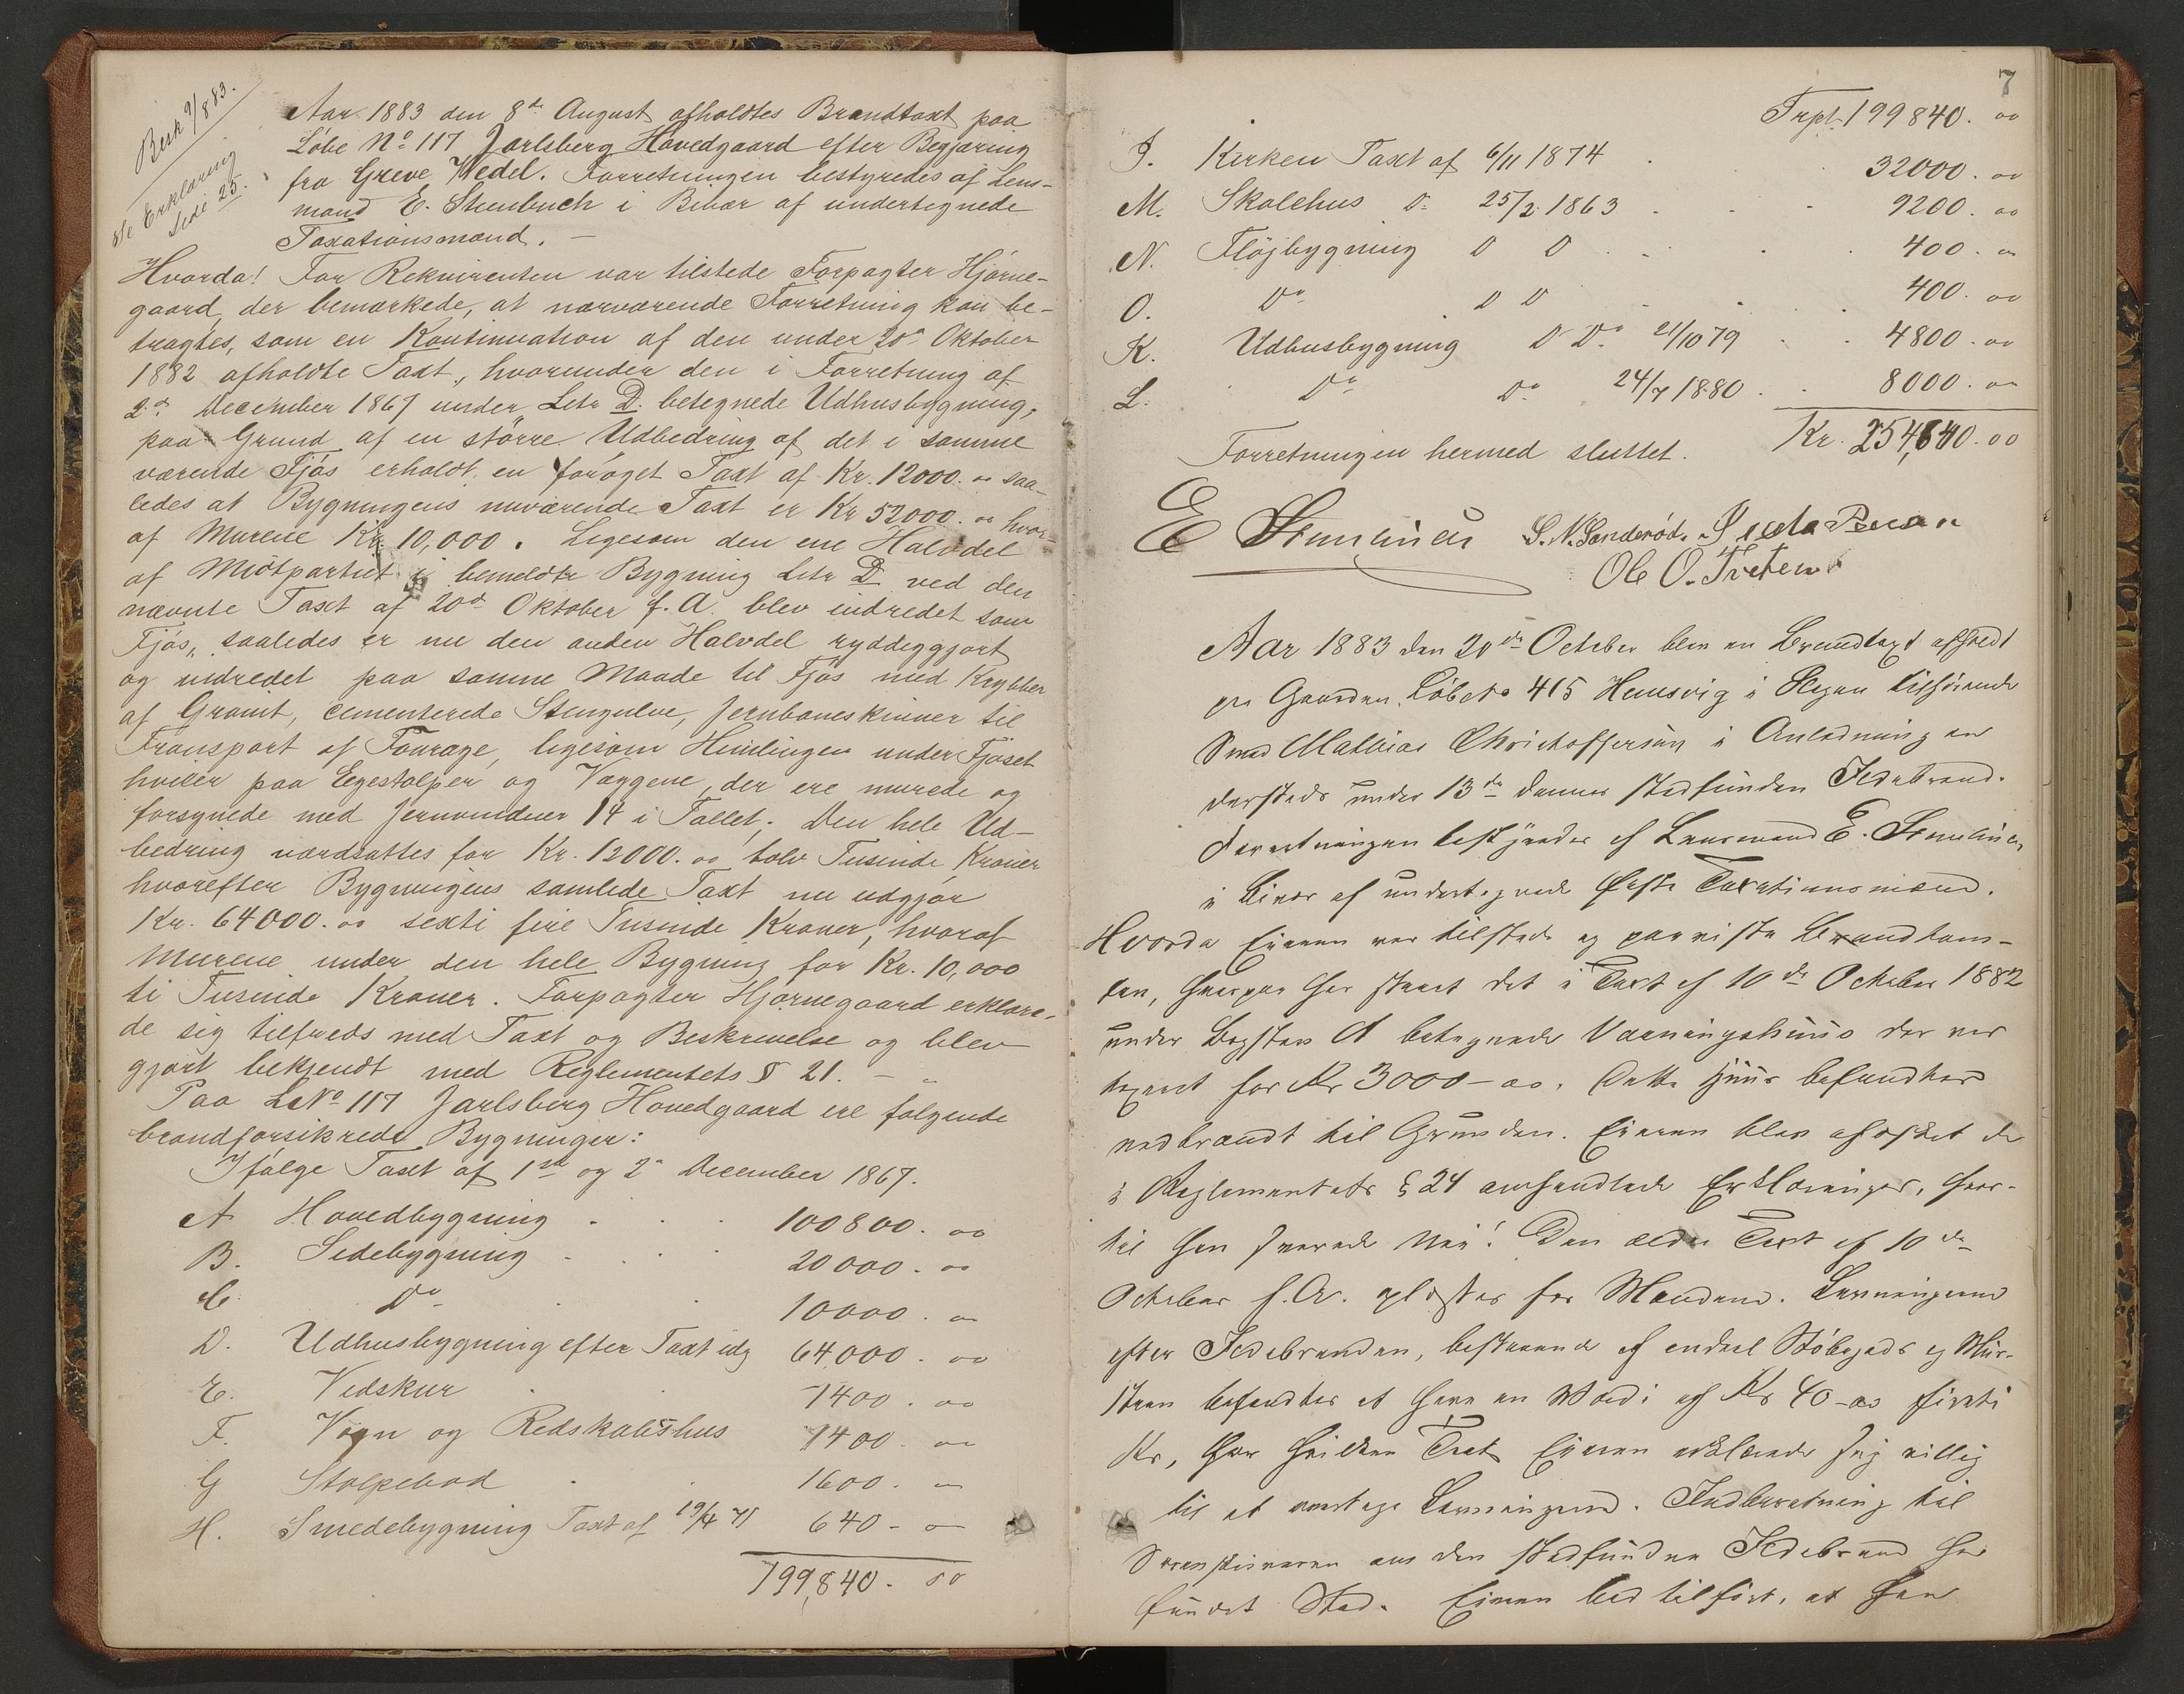 Besk 9/8 83.
Se Erklæring
Side 25.
Aar 1883 den 8de August afholdtes Brandtaxt paa
Løbe No 117 Jarlsberg Hovedgaard efter Begjæring
fra Greve Wedel. Forretningen bestyredes af Lens-
mand E. Stenbuch i Bibør af undertegnede
Taxationsmænd. –
Hvorda! For Rekvirenten var tilstede Forpagter Hjørne-
gaard, der bemærkede, at nærværende Forretning kan be-
tragtes, som en Kontinuation af den under 20de Oktober
1882 afholdte Taxt, hvorunder den i Forretning af
2den December 1867 under Litr D. betegnede Udhusbygning,
paa Grund af en større Udbedring af det i samme
værende Fjøs erholdt en forøget Taxt af Kr. 12000. oo saa-
ledes at Bygningens nuværende Taxt er Kr 52000. oo hvor-
af Murene Kr. 10,000. Ligesom den ene Halvdel
af Midtpartiet i bemeldte Bygning Litr D ved den
nævnte Taxt af 20de Oktober f. A. blev indredet som
Fjøs, saaledes er nu den anden Halvdel ryddeggjort
og indredet paa samme Maade til Fjøs med Krybber
af Granit, cementerede Stengulve, Jernbaneskinner til
Transport af Fourage, ligesom Himlingen under Fjøset
hviler paa Egestolper og Væggene, der ere murede og
forsynede med Jernvinduer 14 i Tallet. Den hele Ud-
bedring værdsattes for Kr. 12000. oo tolv Tusinde Kroner
hvorefter Bygningens samlede Taxt nu udgjør
Kr. 64000. oo sexti fire Tusinde Kroner, hvoraf
Murene under den hele Bygning for Kr. 10,000
ti Tusinde Kroner. Forpagter Hjørnegaard erklære-
de sig tilfreds med Taxt og Beskrivelse og blev
gjort bekjendt med Reglementets § 21. –
Paa LNo 117 Jarlsberg Hovedgaard ere følgende
brandforsikrede Bygninger:
Ifølge Taxt af 1ste og 2den December 1867.
A Hovedbygning . . . 100800. oo
B. Sidebygning . . . 20000. oo
C. Do . . 10000. oo
D. Udhusbygning efter Taxt idg 64,000. oo
E. Vedskur . . 1400. oo
F. Vogn og Redskabshus 1400. oo
G Stolpebod . . 1600. oo
H. Smedebygning Taxt af 19/4 71 640 - oo
199,840. oo
7
Trpt. 199840. oo
I. Kirken Taxt af 6/11 1874 . . 32000. oo
M. Skolehus Do 25/2 1863 . . . 9200. oo
N. Fløjbygning D D . . . 400. oo
O. Do D D . . . 400. oo
K. Udhusbygning D Do 21/10 79 . . 4800. oo
L. Do Do 24/7 1880 . . 8000. oo
Kr. 254,640. oo
Forretningen hermed sluttet.
E Stenbuch S. N. Sanderød.
Ole O. Tveten
Aar 1883 den 20de October blev en Brandtaxt afholdt
paa Gaarden Løbeno 415 Hemsvig i Slagen tilhørende
Smed Mathias Christoffersen i Anledning en
dersteds under 13de dennes stedfunden Ildebrand.
Forretningen bestyredes af Lensmand E. Stenbuch
i Bibør af undertegnede faste Taxationsmænd.
Hvorda Eieren var tilstede og paaviste Brandtom-
ten, hvorpaa har staaet det i Taxt af 10de October 1882
under Bogstav A betegnede Vaaningshuus der var
taxeret for Kr 3000 - oo. Dette Huus befandtes
nedbrændt til Grunden. Eieren blev afæsket de
i Reglementets § 24 omhandlede Erklæringer, hvor-
til han svarede Nei! Den ældre Taxt af 10de
October f. A. oplæstes for Mændene. Levningerne
efter Ildebranden, bestaaende af endeel Støbegods og Mur-
sten befandtes at have en Værdi af Kr 40 - oo firti
Kr, for hvilken Taxt Eieren erklærede sig villig
til at modtage Levningerne. Indberetning til
om den stedfundne Ildebrand har
fundet Sted. Eieren lod tilført, at han